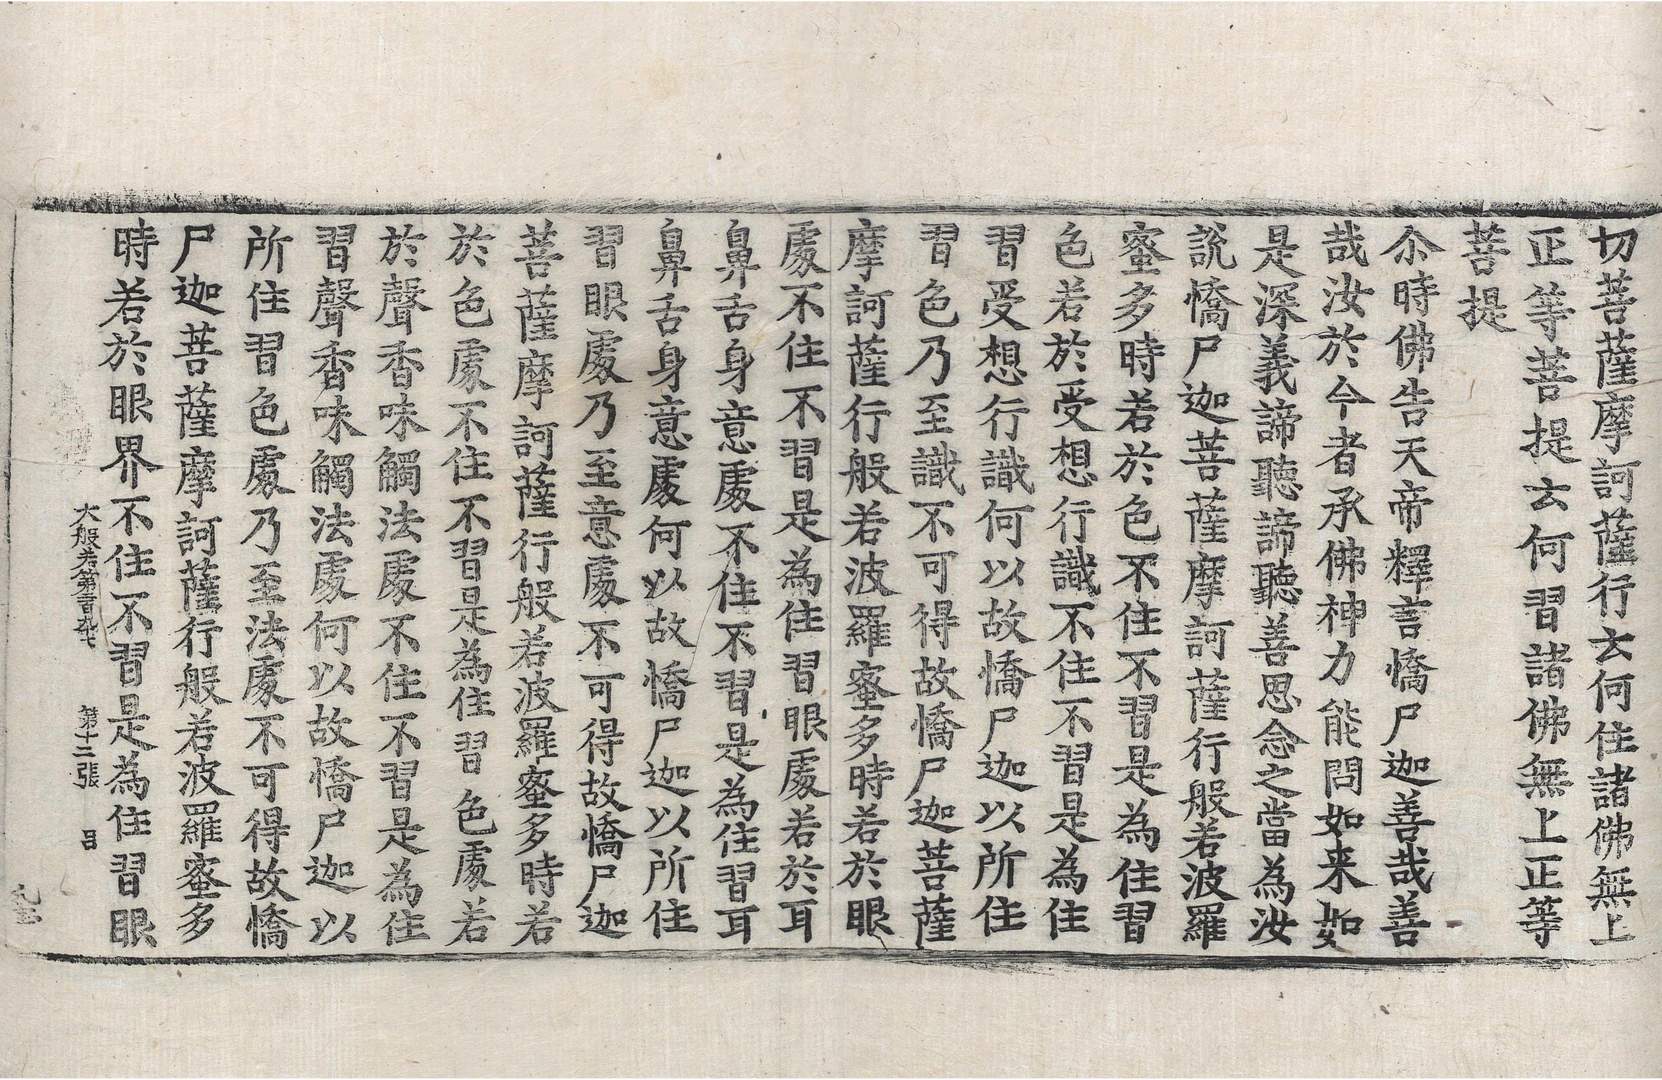 切菩薩摩訶薩行云何住諸佛無上
正等菩提云何習諸佛無上正等
菩提
尒時佛告天帝釋言憍尸迦善哉善
哉汝於今者承佛神力能問如来如
是深義諦聽諦聽善思念之當為汝
說憍尸迦菩薩摩訶薩行般若波羅
蜜多時若於色不住不習是為住習
色若於受想行識不住不習是為住
習受想行識何以故憍尸迦以所住
習色乃至識不可得故憍尸迦菩薩
摩訶薩行般若波羅蜜多時若於眼
處不住不習是為住習眼處若於耳
鼻舌身意處不住不習是為住習耳
鼻舌身意處何以故憍尸迦以所住
習眼處乃至意處不可得故憍尸迦
菩薩摩訶薩行般若波羅蜜多時若
於色處不住不習是為住習色處若
於聲香味觸法處不住不習是為住
習聲香味觸法處何以故憍尸迦以
所住習色處乃至法處不可得故憍
尸迦菩薩摩訶薩行般若波羅蜜多
時若於眼界不住不習是為住習眼
大般若第 第十二張